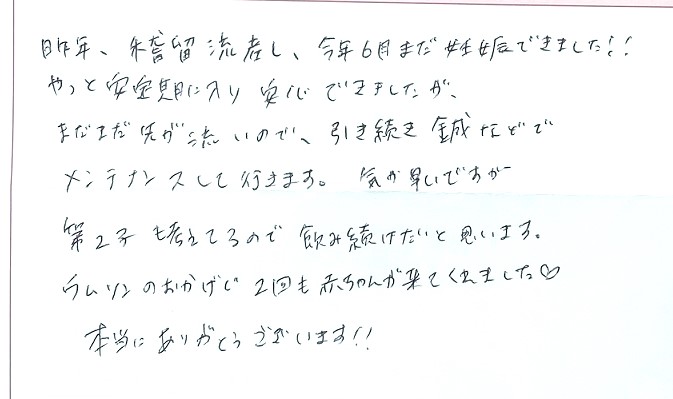 昨年、稽留流産し、今年6月また妊娠できました!!
やっと安定期に入り安心できましたが、
まだまだ先が流いので、引き続き鍼などで
メンテナンスして行きます。気が早いですが
第2子も考えてるので飲み続けたいと思います。
ラムソンのおかげで2回も赤ちゃんが来てくれました♡
本当にありがとうございます!!